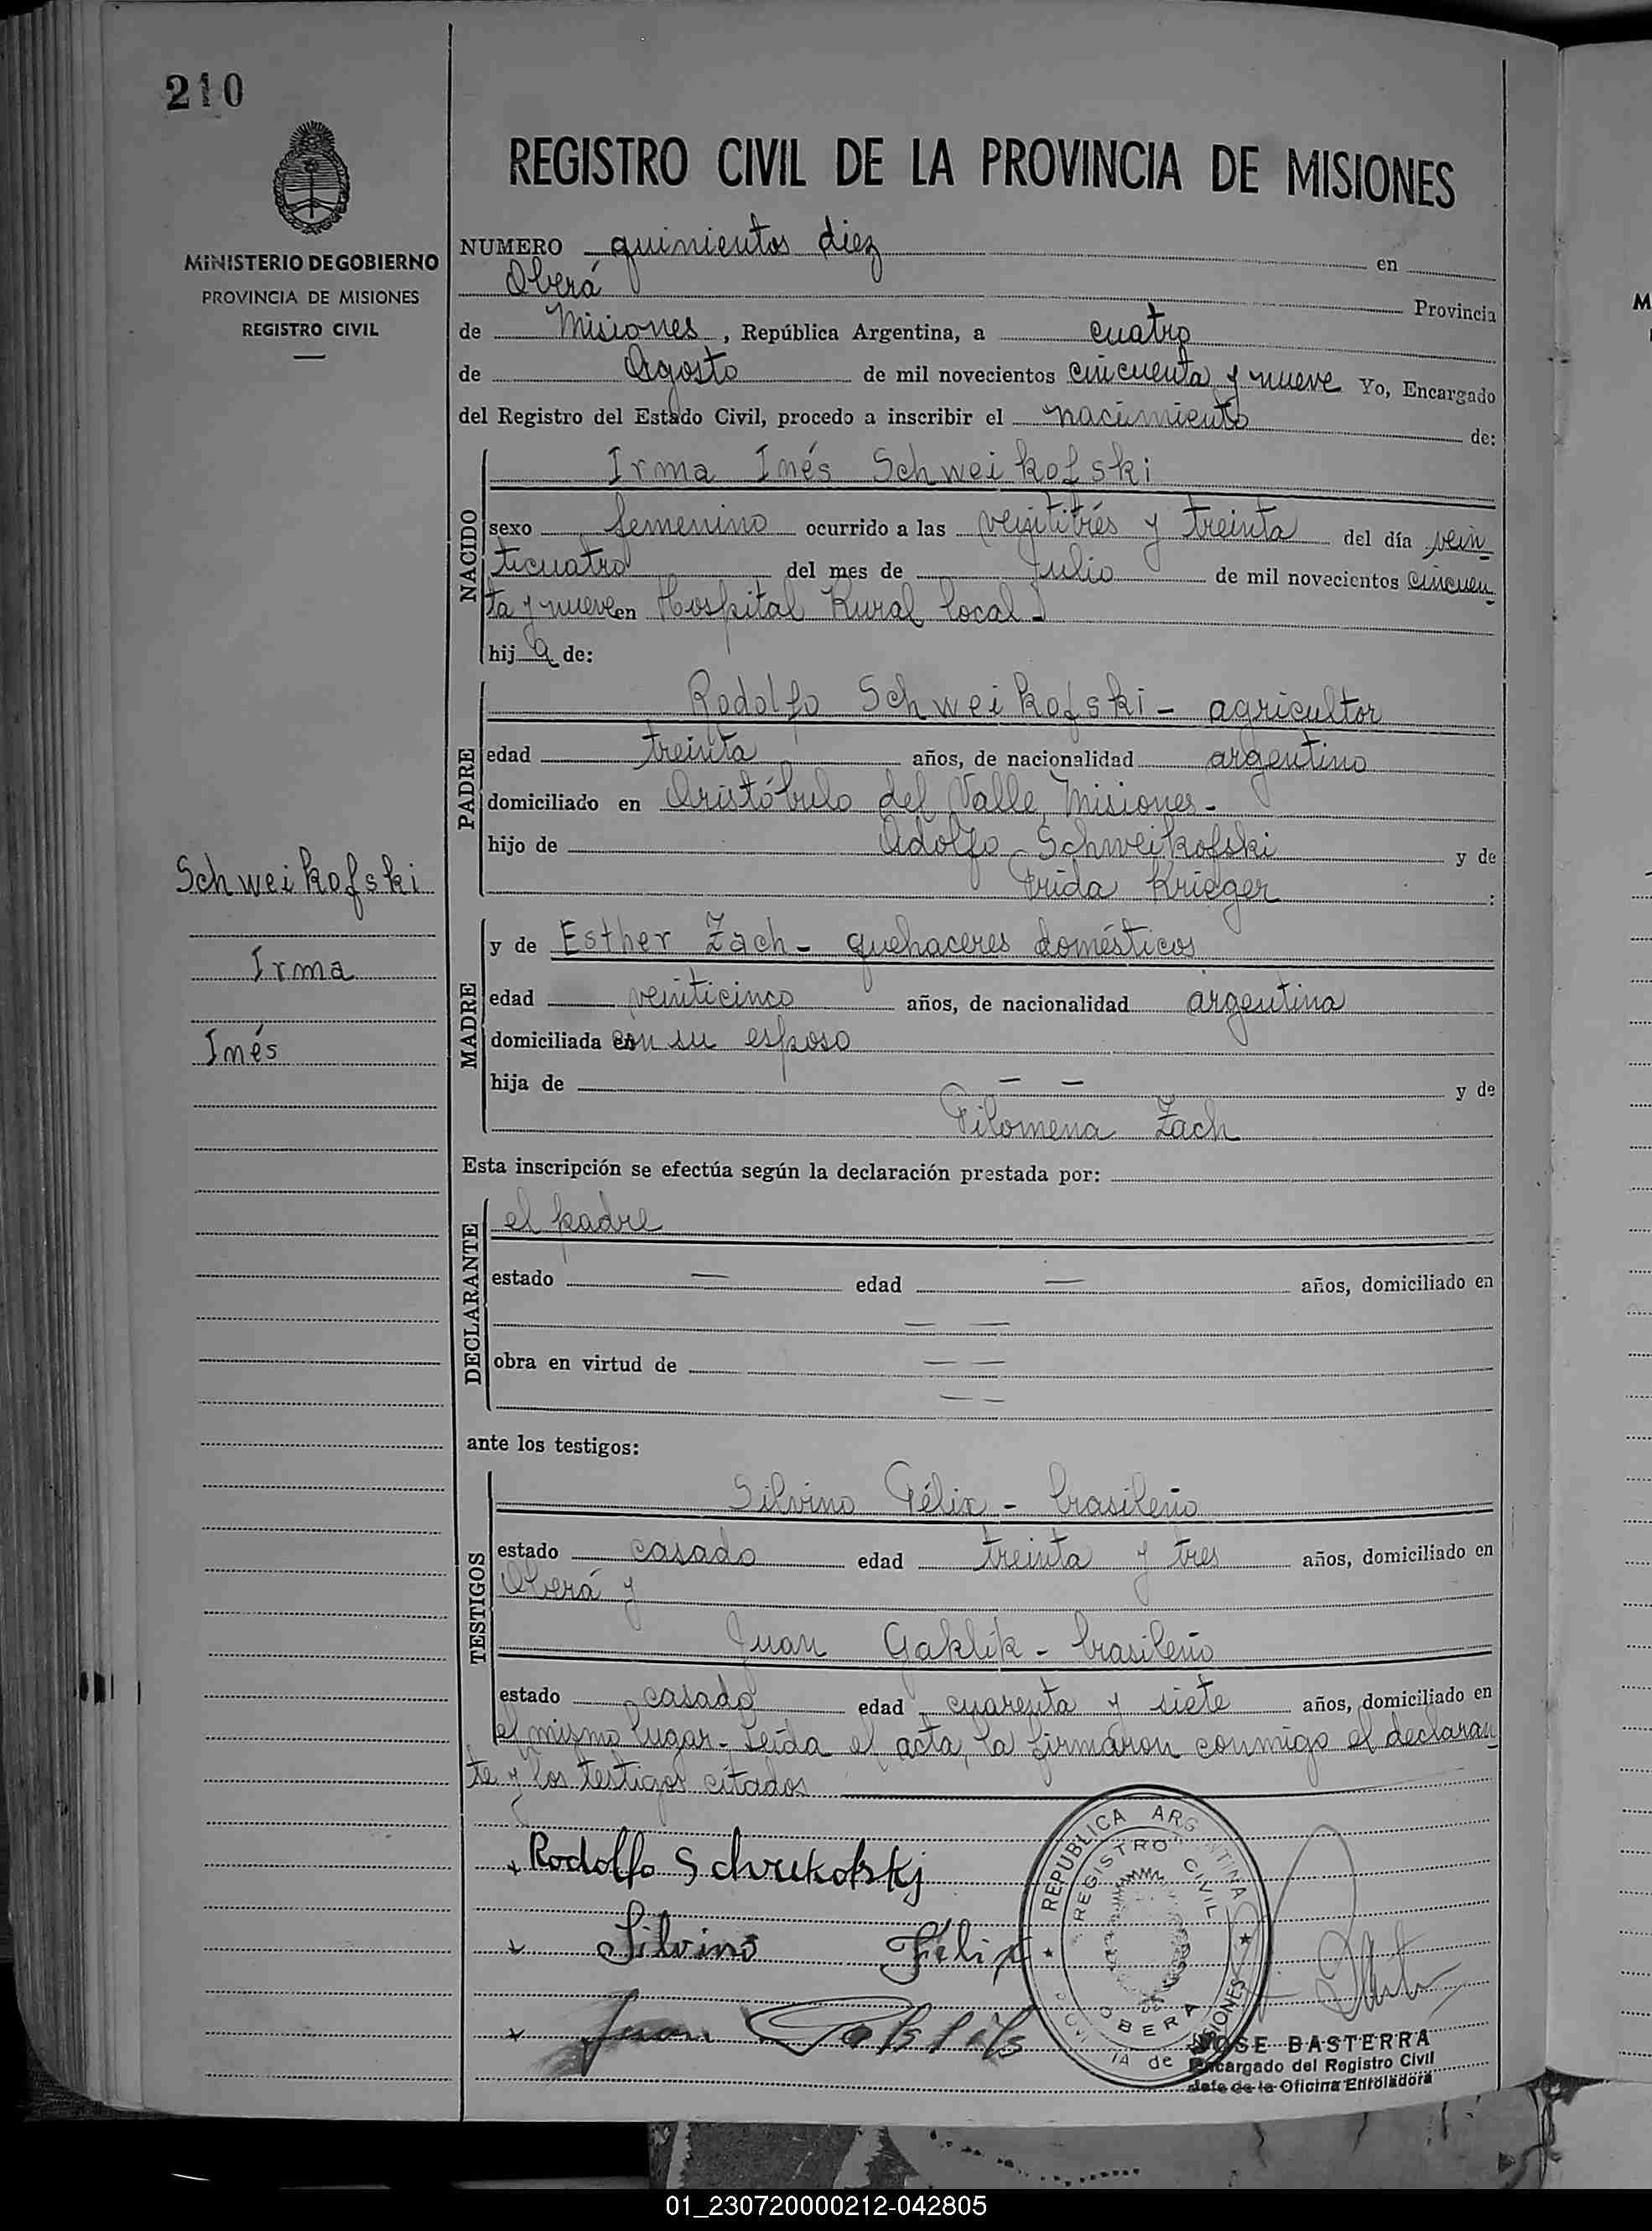 210
MINISTERIO DE GOBIERNO
PROVINCIA DE MISIONES
REGISTRO CIVIL
Schweikofski
Irma
Inés
REGISTRO CIVIL DE LA PROVINCIA DE MISIONES
NUMERO quinientos diez en
Oberá Provincia
de Misiones, República Argentina, a cuatro
de Agosto de mil novecientos cincuenta y nueve Yo, Encargado
del Registro del Estado Civil, procedo a inscribir el nacimiento de:
NACIDO
Irma Inés Schweikofski
sexo femenino ocurrido a las veintitrés y treinta del día vein
ticuatro del mes de Julio de mil novecientos cincuen
ta y nueve en Hospital Rural local.-
hija de:
PADRE
Rodolfo Schweikofski - agricultor
edad treinta años, de nacionalidad argentino
domiciliado en Aristóbulo del Valle, Misiones.-
hijo de Adolfo Schweikofski y de
Frida Krieger :
MADRE
y de Esther Zach - quehaceres domésticos
edad veinticinco años, de nacionalidad argentina
domiciliada en su esposo
hija de — — y de
Filomena Zach
Esta inscripción se efectúa según la declaración prestada por:
DECLARANTE
el padre
estado — edad — años, domiciliado en
— —
obra en virtud de — —
— —
ante los testigos:
TESTIGOS
Silvino Félix - brasileño
estado casado edad treinta y tres años, domiciliado en
Oberá y
Juan Gaklik - brasileño
estado casado edad cuarenta y siete años, domiciliado en
el mismo lugar.- Leída el acta, la firmaron conmigo el declaran
te y los testigos citados
Rodolfo Schveikofskj
Silvino Félix
Juan
REPUBLICA ARGENTINA
REGISTRO CIVIL
OBERA
PROVINCIA de MISIONES
JOSE BASTERRA
Encargado del Registro Civil
Jefe de la Oficina Enroladora
M
01_230720000212-042805